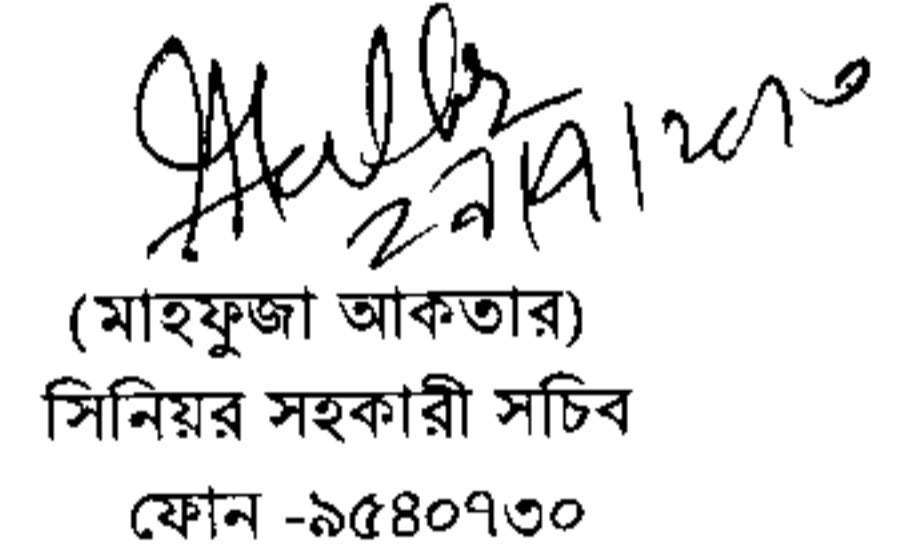 (মাহফুজা আকতার)
সিনিয়র সহকারী সচিব
ফোন -৯৫৪০৭৩০